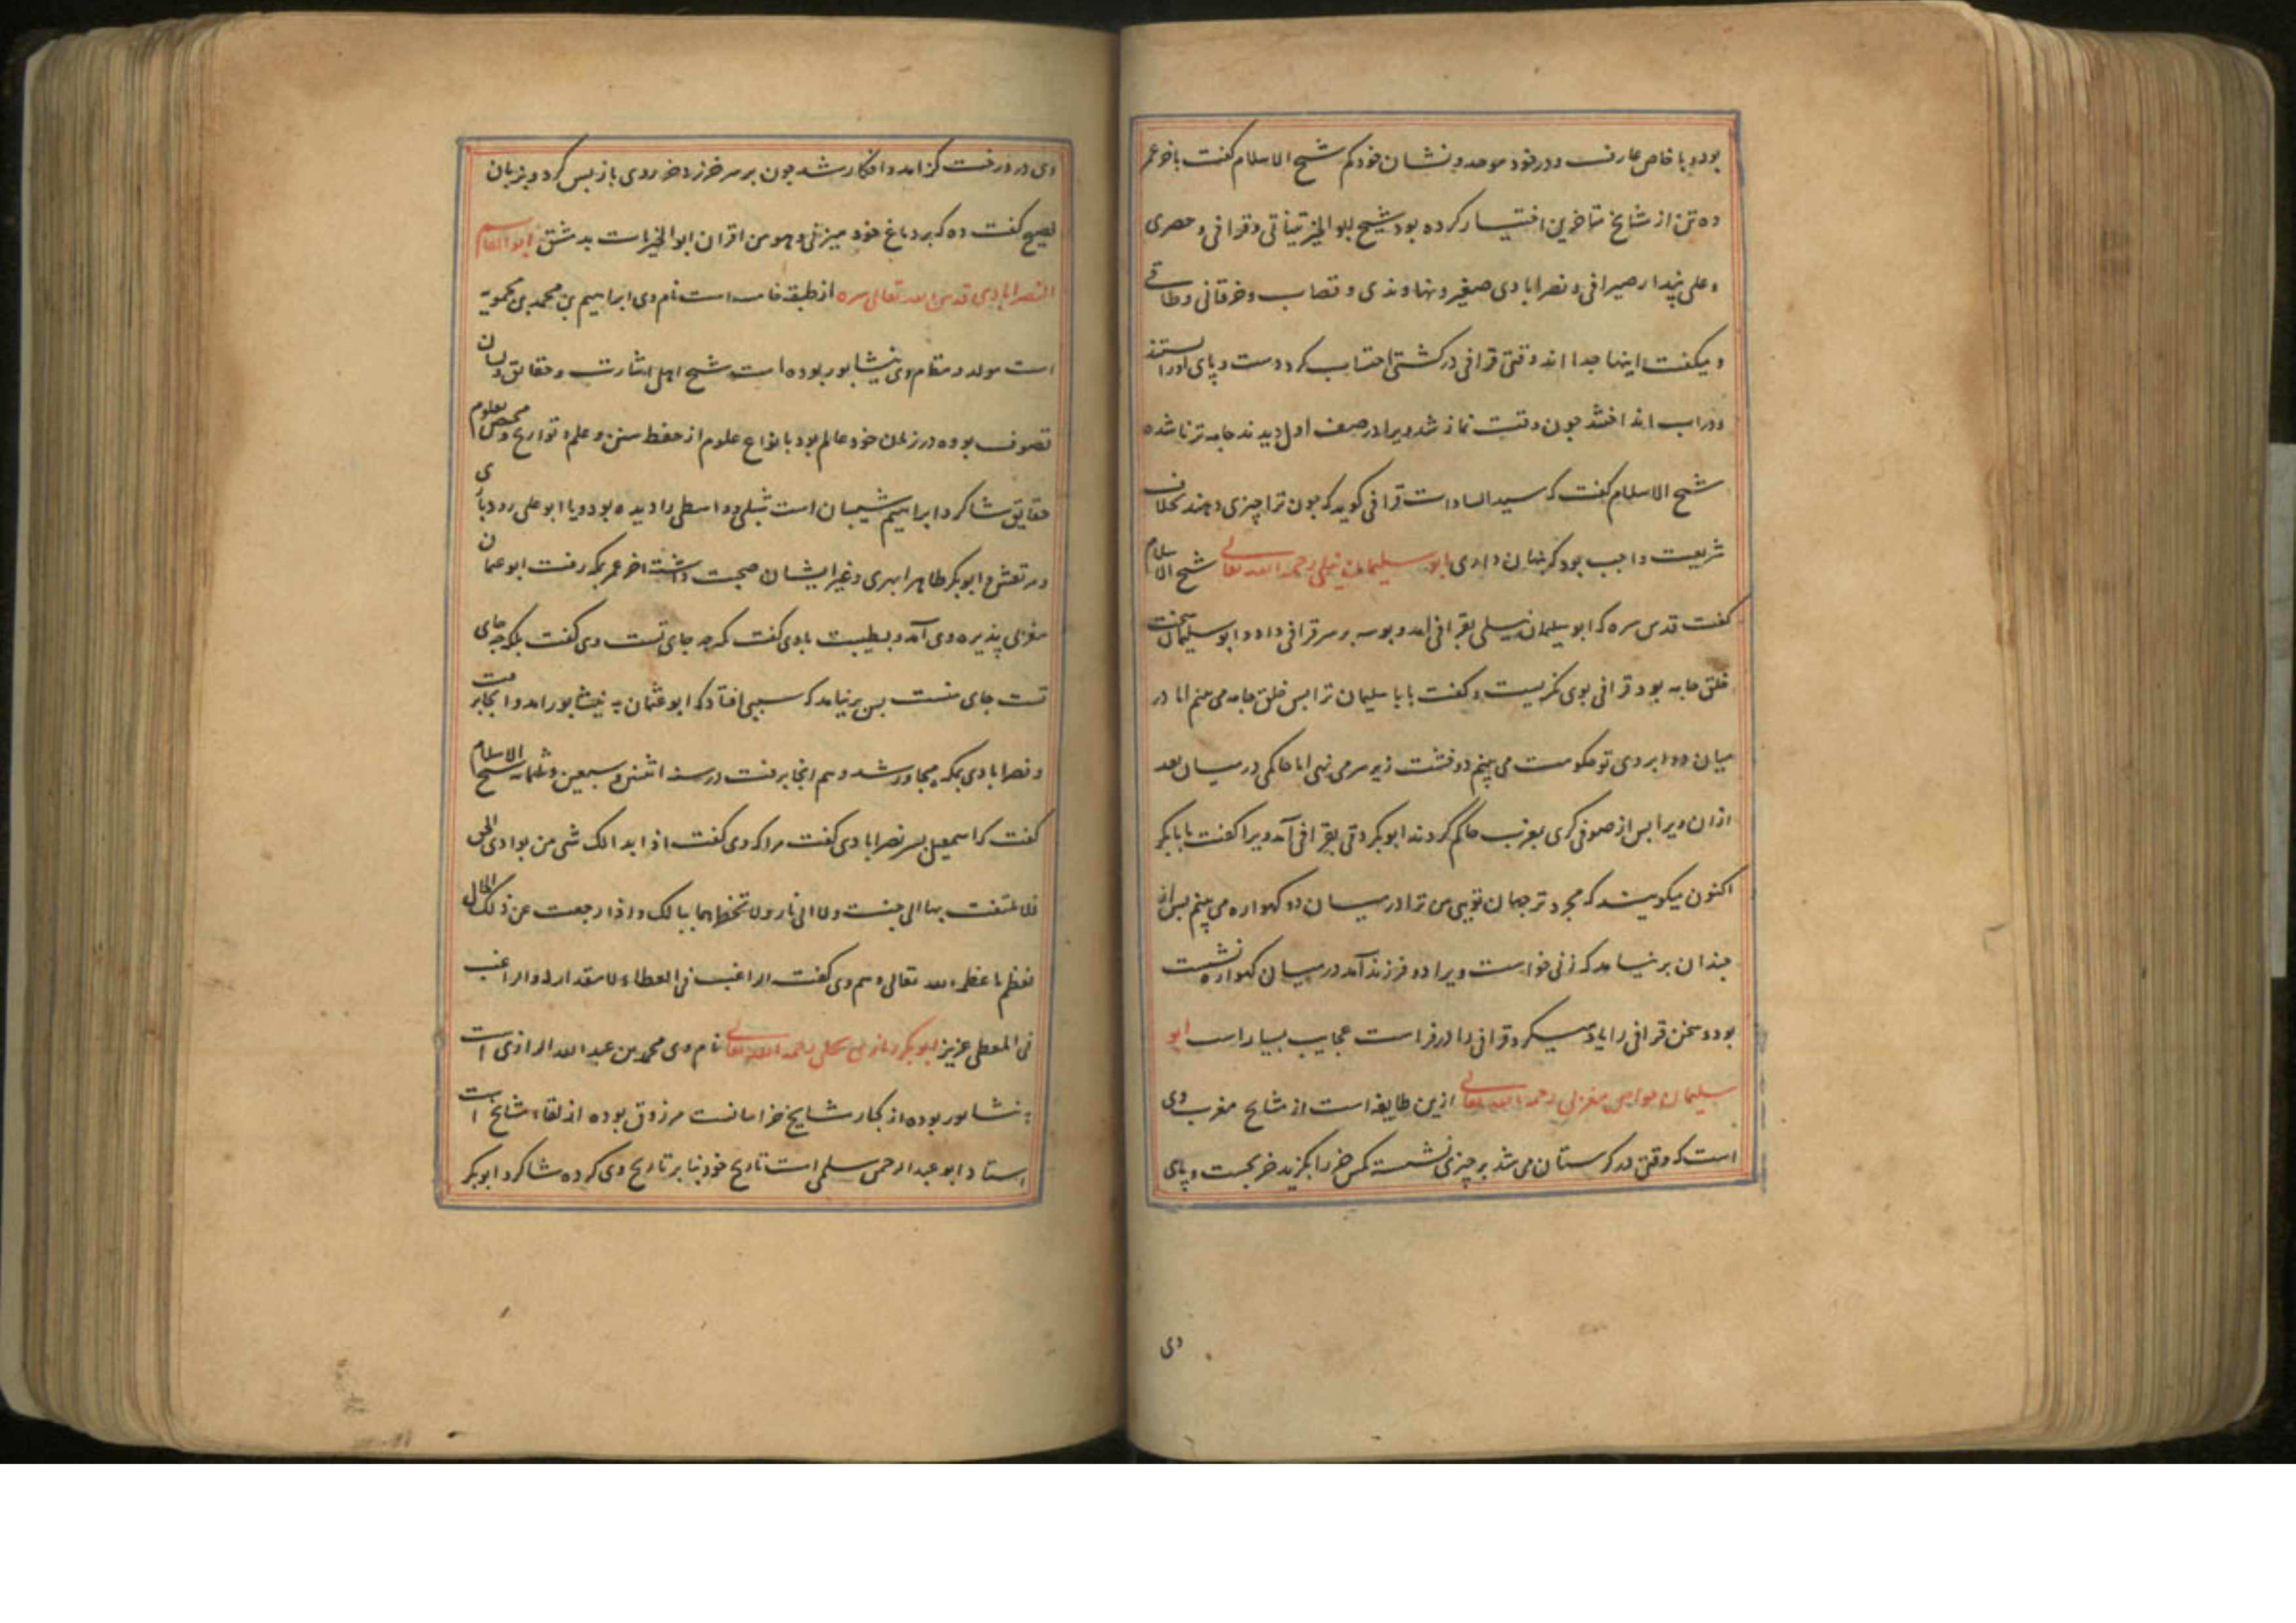 بود و با خاص عارف و در خود موحد و نشان خود کم شیخ الاسلام کفت باخر عمر
ده تن از مشایخ متاخرین اختیار کرده بود شیخ ابوالخیر تیناتی و قرافی و حصری
و علی بندار صیرافی و نصرابادی صغیر و نهاوندی و قصاب و خرقانی و طاقی
و میکفت اینها جدا اند وقتی قرافی در کشتی احتساب کرد دست و پای اورا بستند
و در اب انداختند جون وقت نماز شد ویرا در صف اول دیدند جامه تر ناشده
شیخ الاسلام کفت که سید السادات قرافی کوید که جون ترا چیزی دهند بخلاف
شریعت واجب بود که نهان داری ابو سلیمان نیلی رحمه الله تعالی شیخ الاسلام
کفت قدس سره که ابو سلیمان نیلی بقرافی امد و بوسه بر سر قرافی داد و ابو سلیمان سخت
خلق جامه بود قرافی بوی نکریست و کفت یا با سلیمان ترا بس خلق جامه می بینم اما در
میان دو ابروی تو حکومت می بینم دو خشت زیر سر می نهی اما حاکمی در میان بعد
ازان ویرا بس از صوفی کری بعرب حاکم کردند ابوبکر دقی بقرافی آمد ویرا کفت یا بابکر
اکنون میکویند که مجرد ترجهان تویی من ترا در میان دو کهواره می بینم بس از
جندان بر نیامد که زنی خواست ویرا دو فرزند آمد در میان کهواره نشست
بود و سخن قرافی را یاد میکرد و قرافی را در فراست عجایب بسیار است ابو
سلیمان خواص مغربی رحمه الله تعالی ازین طایفه است از مشایخ مغرب وی
است که وقتی در کرستان می شد بر چیزی نشسته مکس خر را بکزید خر بجست و پای
وی
وی در درخت کز امد و افکار شد جون بر سر خر زد خر روی باز بس کرد و بزبان
فصیح کفت ده که بر دماغ خود میزنی و هو من اقران ابو الخیر مات بدمشق ابو القاسم
النصرابادی قدس الله تعالی سره از طبقه خامسه است نام وی ابراهیم بن محمد بن محمویه
است مولد و مقام وی نیشابور بوده است شیخ اهل اشارت و حقایق و لسان
تصوف بوده در زمان خود عالم بود بانواع علوم از حفظ سنن و علم و تواریخ و مخصص بعلوم
حقایق شاکرد ابراهیم شیبان است شبلی و واسطی را دیده بود و با ابو علی رودباری
و مرتعش و ابوبکر طاهر ابهری و غیر ایشان صحبت داشته اخر عمر بمکه رفت ابو عثمان
مغربی پذیره وی آمد و بطیبت با وی کفت مکه چه جای تست وی کفت بلکه چه جای
تست جای منست بس بر نیامد که سببی افتاد که ابو عثمان به نیشابور امد و انجا برفت
و نصرابادی بمکه مجاور شد و هم انجا برفت در سنه اثنین و سبعین و ثلمائه شیخ الاسلام
کفت که اسمعیل بسر نصرابادی کفت مرا که وی کفت اذا بدا لک شی من بوادی الحق
فلا تلتفت بها الی جنت ولا الی نار ولا تخطرهما ببالک و اذا رجعت عن ذلک الحال
فعظم ما عظمه الله تعالی و هم وی کفت الراغب فی العطاء لا مقدار له و الراغب
فی المعطی عزیز ابو بکر رازی بجلی رحمه الله تعالی نام وی محمد بن عبد الله الرازی است
به نشابور بوده از کبار مشایخ خراسانست مرزوق بوده از لقاء مشایخ است
استاد ابو عبد الرحمن سلمی است تاریخ خود بنا بر تاریخ وی کرده شاکرد ابو بکر